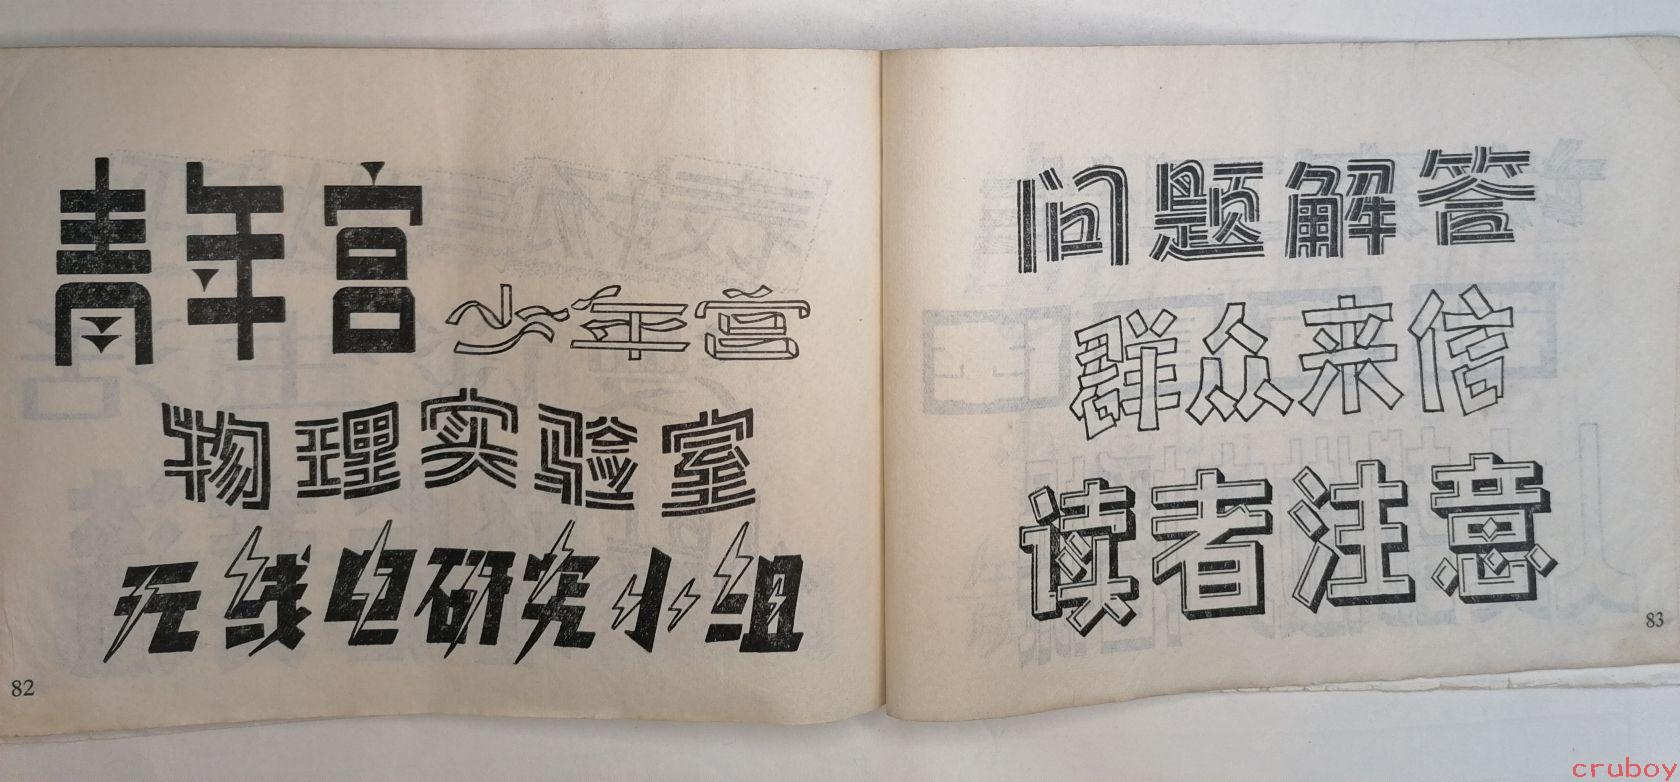 青年宫
少年宫
物理实验室
无线电研究小组
82
问题解答
群众来信
读者注意
83
cruboy